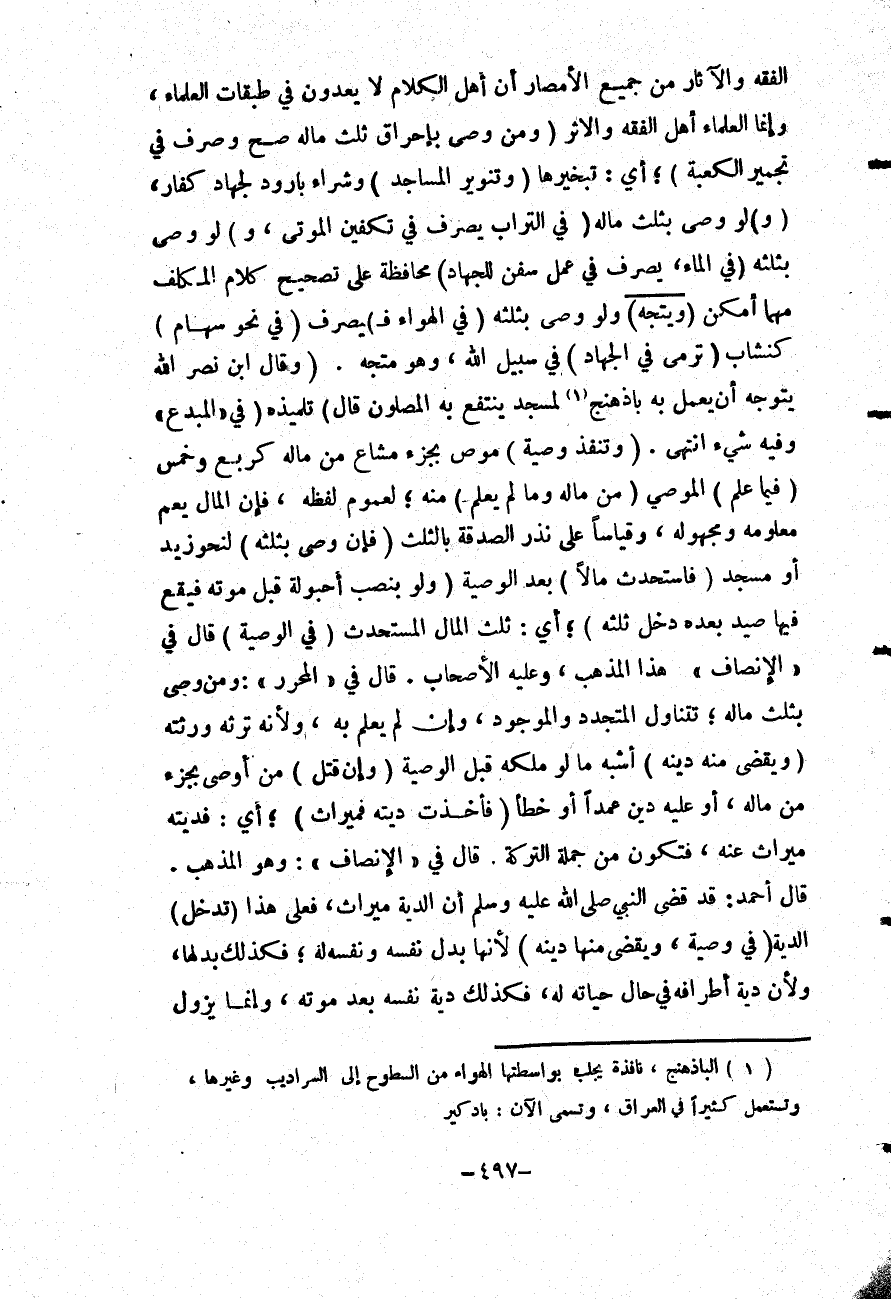 الفقه والآثار من جميع الأمصار أن أهل الكلام لا يعدون في طبقات العلماء ،
وإنما العلماء أهل الفقه والاثر ( ومن وصى بإحراق ثلث ماله صح وصرف في
تجمير الكعبة ) ؛ أي : تبخيرها ( وتنوير المساجد ) وشراء بارود لجهاد كفار،
( و)لو وصى بثلث ماله( في التراب يصرف في تكفين الموتى ، و ) لو وصى
بثلثه (في الماء، يصرف في عمل سفن للجهاد) محافظة على تصحيح كلام المكلف
مهما أمكن (ويتجه) ولو وصى بثلثه ( في الهواء فـ)يصرف ( في نحو سهام )
كنشاب ( ترمى في الجهاد ) في سبيل الله ، وهو متجه . ( وقال ابن نصر الله
يتوجه أن يعمل به باذهنج(١) لمسجد ينتفع به المصلون قال) تلميذه ( في «المبدع»
وفيه شيء انتهى . ( وتنفذ وصية ) موص بجزء مشاع من ماله كربع وخمس
( فيما علم ) الموصي ( من ماله وما لم يعلم ) منه ؛ لعموم لفظه ، فإن المال يعم
معلومه ومجهوله ، وقياساً على نذر الصدقة بالثلث ( فإن وصى بثلثه ) لنحو زيد
أو مسجد ( فاستحدث مالاً ) بعد الوصية ( ولو بنصب أحبولة قبل موته فيقع
فيها صيد بعده دخل ثلثه ) ؛ أي : ثلث المال المستحدث ( في الوصية ) قال في
« الإنصاف » هذا المذهب ، وعليه الأصحاب . قال في « المحرر » : ومن وصى
بثلث ماله ؛ تتناول المتجدد والموجود ، وإن لم يعلم به ، ولأنه ترثه ورثته
( ويقضى منه دينه ) أشبه ما لو ملكه قبل الوصية ( وإن قتل ) من أوصى بجزء
من ماله ، أو عليه دين عمداً أو خطأ ( فأخذت ديته فميراث ) ؛ أي : فديته
ميراث عنه ، فتكون من جملة التركة . قال في « الإنصاف » : وهو المذهب .
قال أحمد: قد قضى النبي صلى الله عليه وسلم أن الدية ميراث، فعلى هذا (تدخل)
الدية( في وصية ، ويقضى منها دينه ) لأنها بدل نفسه ونفسه له ؛ فكذلك بدلها،
ولأن دية أطرافه في حال حياته له، فكذلك دية نفسه بعد موته ، وإنما يزول
( ١ ) الباذهنج ، نافذة يجلب بواسطتها الهواء من السطوح إلى السراديب وغيرها ،
وتستعمل كثيراً في العراق ، وتسمى الآن : بادكير
-٤٩٧-